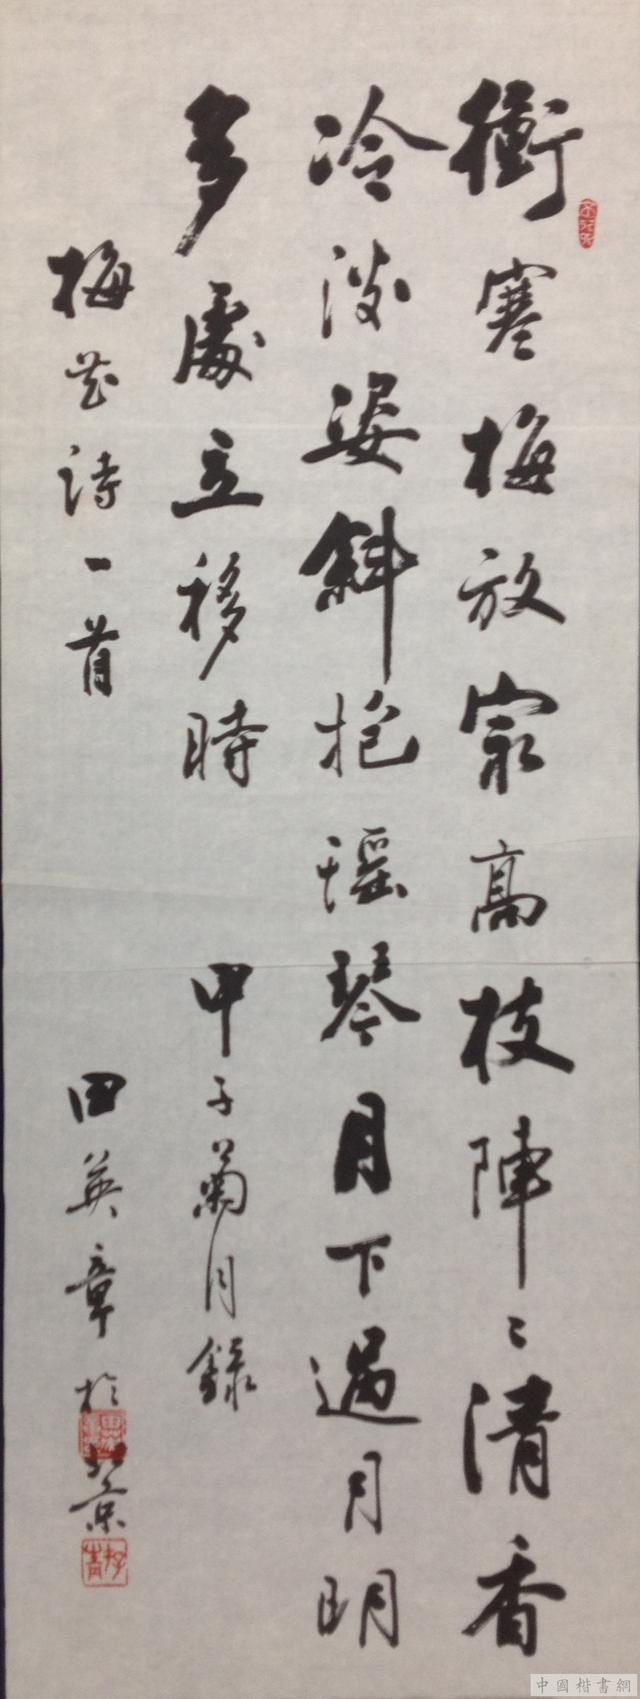 衝寒梅放㝡高枝陣〻清香
冷淡姿斜抱瑶琴月下過月明
多處立移時 甲子菊月錄
梅花詩一首 田英章於北京
中國楷書網